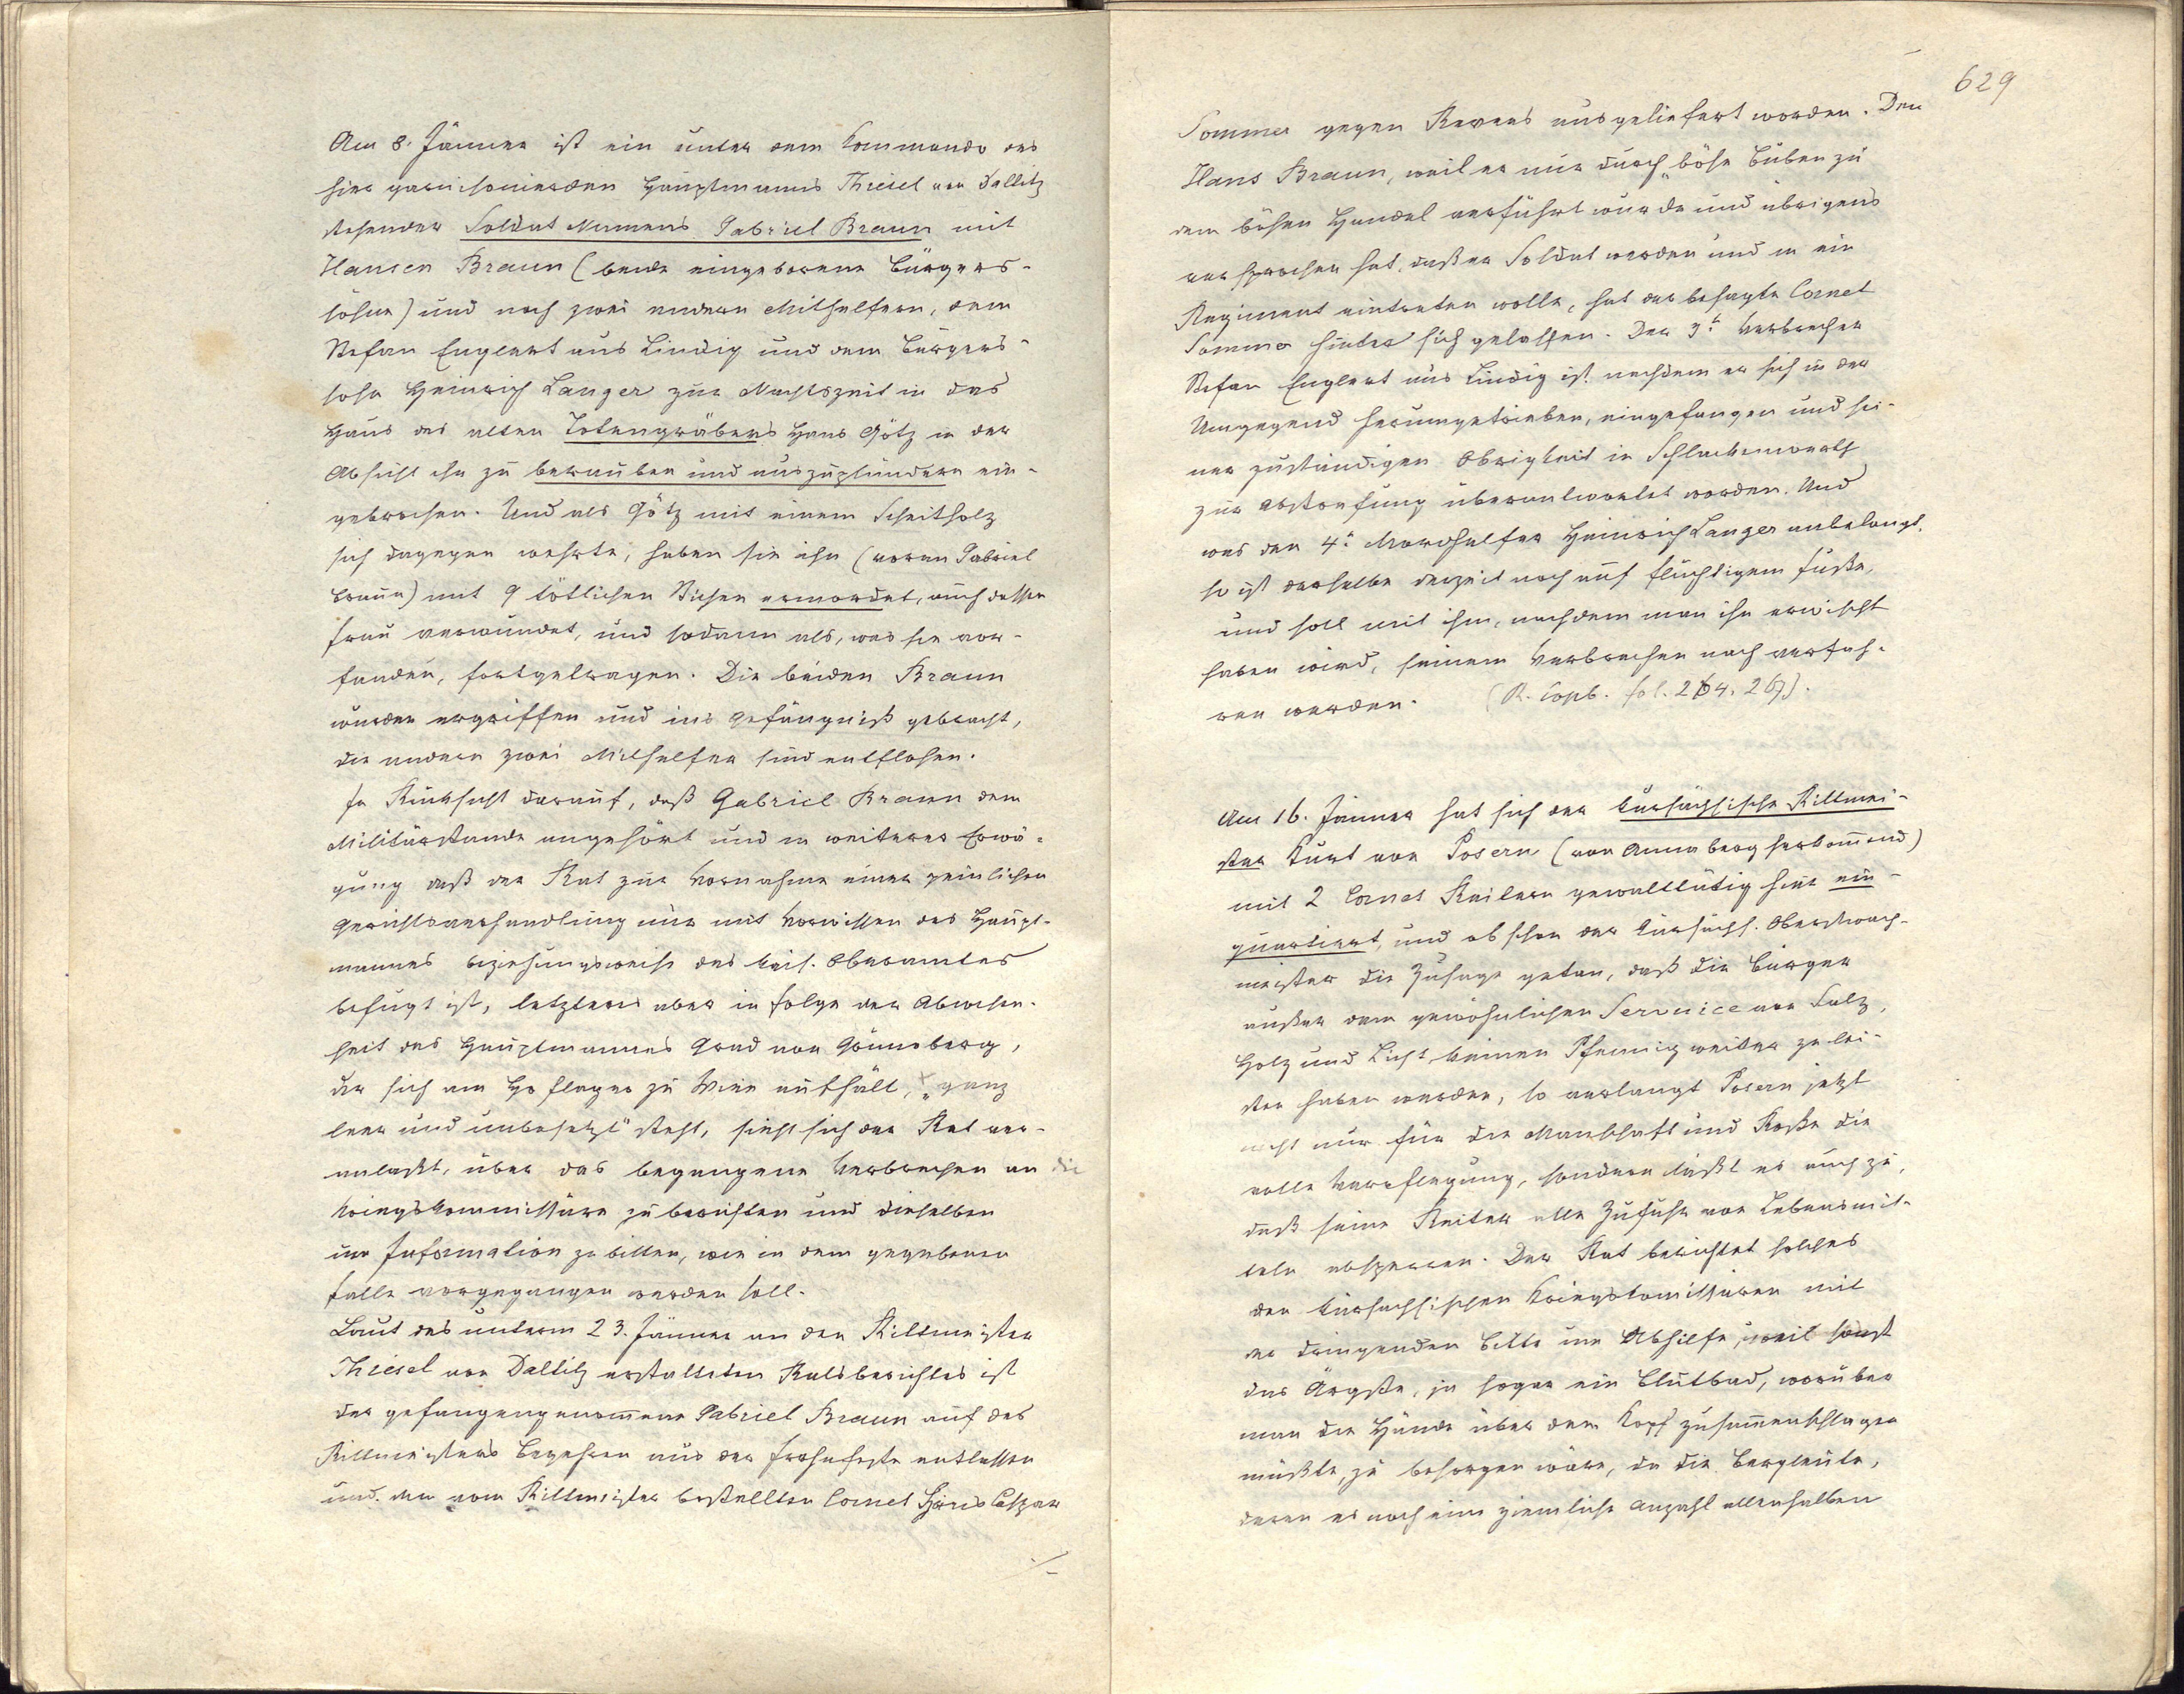 Am 8. Jänner ist ein unter dem Kommando des
hier garnisonierden Hauptmanns Thiesel von Dallitz
stehender Soldat Namens Gabriel Braun mit
Hansen Braun (beide eingeborene Bürgers-
söhne) und noch zwei andern Mithelfern, dem
Stefan Englert aus Lindig und dem Bürgers-
sohn Heinrich Langer zur Nachtszeit in das
Haus des alten Totengräbers Hans Götz in der
Absicht ihn zu berauben und auszuplündern ein-
gebrochen. Und als Götz mit einem Scheitholz
sich dagegen wehrte, haben sie ihn (voran Gabriel
Braun) mit 9 tötlichen Stichen ermordet, auch dessen
Frau verwundet, und sodann als, was sie vor-
fanden, fortgetragen. Die beiden Braun
wurden ergriffen und ins Gefängniß gebracht,
die andern zwei Mithelfer sind entflohen.
In Rücksicht darauf, daß Gabriel Braun dem
Militärstande angehört und in weiterer Erwä-
gung daß der Rat zur Vornahme einer peinlichen
Gerichtsverhandlung nur mit Vorwissen des Haupt-
mannes beziehungsweise des kais. Oberamtes
befugt ist, letzteres aber in Folge der Abwesen-
heit des Hauptmannes Grad von Grünberg,
der sich am Hoflager zu Wien aufhält, "ganz
leer und unbesetzt" steht, sieht sich der Rat ver-
anlaßt, über das begangene Verbrechen an die
Kriegskommissäre zu berichten und dieselben
um Information zu bitten, wie in dem gegebenen
Falle vorgegangen werden soll.
Laut des unterm 23. Jänner an den Rittmeister
Thiesel von Dallitz erstatteten Ratsberichtes ist
der gefangengenommene Gabriel Braun auf des
Rittmeisters Begehren aus der Frohnfeste entlassen
und dem vom Rittmeister bestellten Cornet Hans Caspar
./.
629
Sommer gegen Revers ausgeliefert worden. Den
Hans Braun, weil er nur durch "böse Buben zu
dem bösen Handel verführt wurde und übrigens
versprochen hat, daß er Soldat werden und in ein
Regiment eintreten wolle, hat der besagte Cornet
Sommer hinter sich gelassen. Der 3te Verbrecher
Stefan Englert aus Lindig ist nachdem er sich in der
Umgegend herumgetrieben, eingefangen und sei-
ner zuständigen Obrigkeit in Schlackenwerth
zur Abstrafung überantwortet worden. Und
was den 4. Mordhelfer Heinrich Langer anbelangt,
so ist derselbe derzeit noch auf flüchtigem Fuße,
und soll mit ihm, nachdem man ihn erwischt
haben wird, seinem Verbrechen nach verfah-
ren werden. (R. Copb. fol. 264. 267).
Am 16. Jänner hat sich der kursächsische Rittmei-
ster Kurt von Posern (von Annaberg herkommend)
mit 2 Cornet Reitern gewalttätig hier ein-
quartiert, und obschon der kursächs. Oberstwach-
meister die Zusage getan, daß die Bürger
außer dem gewöhnlichen Servuice von Salz,
Holz und Licht keinen Pfennig weiter zu lei-
sten haben werden, so verlangt Posern jetzt
nicht nur für die Mannschaft und Roße die
volle Verpflegung, sondern läßt es auch zu,
daß seine Reiter alle Zufuhr von Lebensmit-
teln absperren. Der Rat berichtet solches
den kursächsischen Kriegskomissären mit
der dringenden Bitte um Abhilfe, weil sonst
das Ärgste, ja sogar ein Blutbad, worüber
man die Hände über dem Kopf zusammenschlagen
müßte, zu besorgen wäre, da die Bergleute,
deren es noch eine ziemliche Anzahl allenhalben